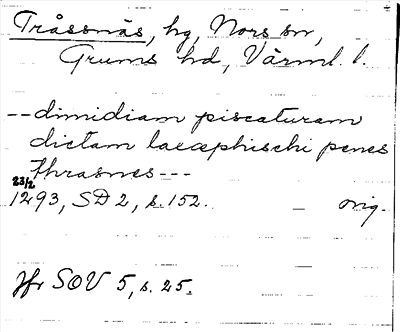 Tråssnäs, hg, Nors sn,
Grums hd, Värml. l.
-- dimidiam piscaturam
dictam laxæphischi penes
thrasnes ---
23/2
1293, SD 2, s. 152. orig.
Jfr SOV 5, s. 25.